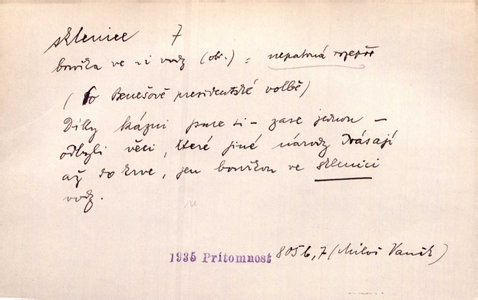 sklenice 7
bouřka ve ~i vody (obr.) = nepatrná rozepře
(Po Benešově presidentské volbě)
Díky kázni jsme si – zase jednou –
odbyli věci, které jiné národy drásají
až do krve, jen bouřkou ve sklenici
vody.
1935 Prítomnost 805b, 7 (Miloš Vaněk)